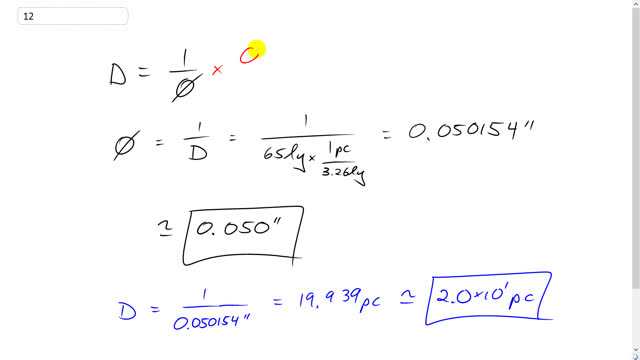 12
D = 1/∅ × 0
∅ = 1/D = 1/(65ly × 1pc/3.26ly) = 0.050154"
≃ 0.050"
D = 1/0.050154" = 19.939pc ≃ 2.0×10¹pc